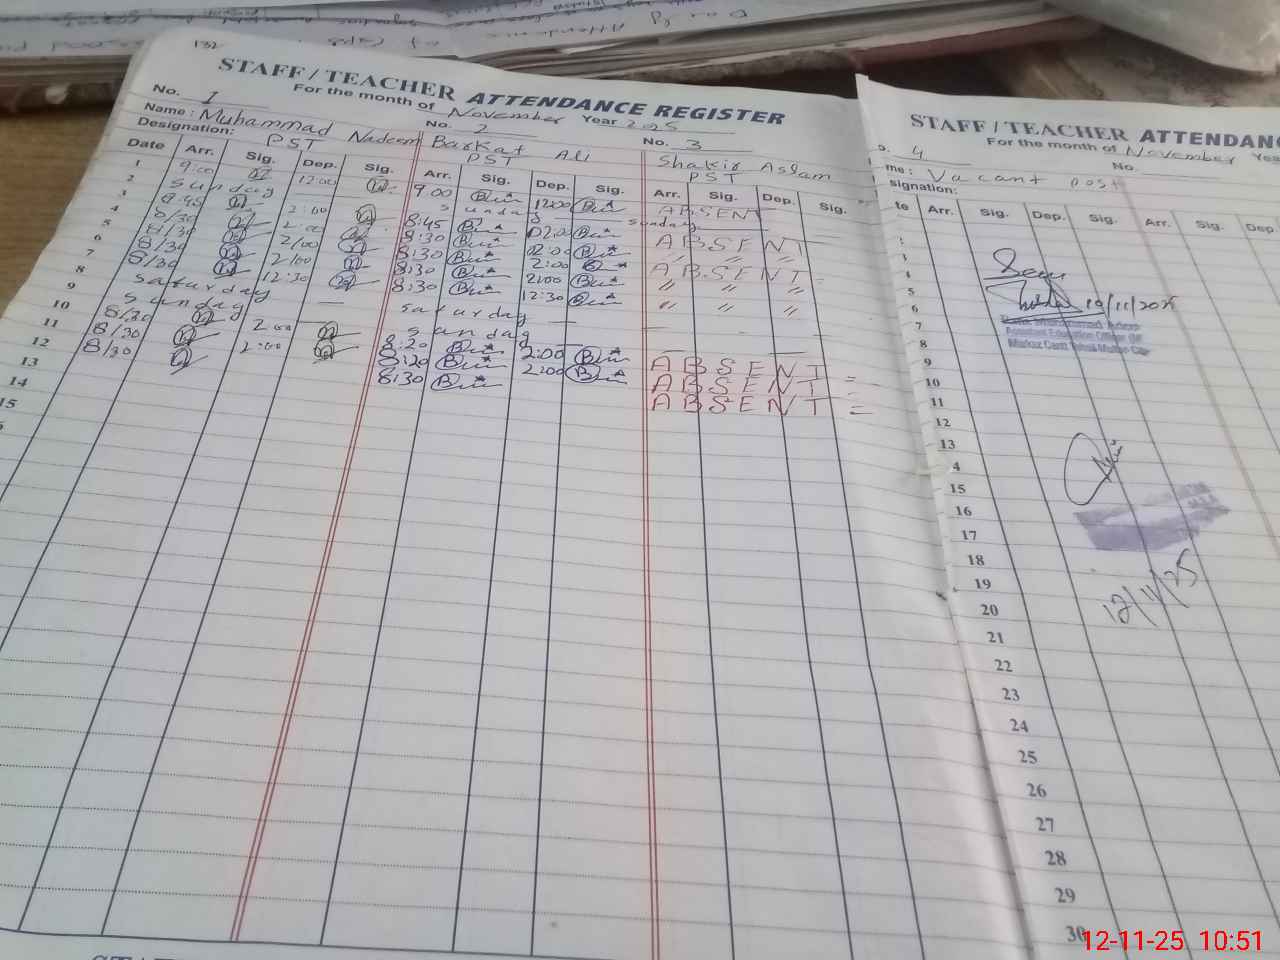 132
STAFF / TEACHER ATTENDANCE REGISTER
For the month of November Year 2025
No. 1 No. 2 No. 3
Name: Muhammad Nadeem Barkat Ali Shakir Aslam
Designation: PST PST PST
Date Arr. Sig. Dep. Sig. Arr. Sig. Dep. Sig. Arr. Sig. Dep. Sig.
1 9:00 12:00 9:00 12:00 ABSENT
2 Sunday Sunday Sunday
3 8:45 2:00 8:45 02:00 ABSENT
4 8/30 2:00 8:30 02:00 " " "
5 8/30 2/00 8:30 2:00 ABSENT
6 8/30 2/00 8:30 2:00 " " "
7 8/30 12:30 8:30 12:30 " " "
8 Saturday Saturday
9 Sunday Sunday
10 8/30 2:00 8:20 2:00 ABSENT
11 8/30 2:00 8:20 2:00 ABSENT
12 8/30 8:30 ABSENT
13
14
15
STAFF / TEACHER ATTENDANC
For the month of November Yea
4 No.
me: Vacant post
signation:
te Arr. Sig. Dep. Sig. Arr. Sig. Dep.
4
5
6 10/11/2025
7
8
9
10
11
12
13
4
15
16
17
18
19
20
12/11/25
21
22
23
24
25
26
27
28
29
30
12-11-25 10:51